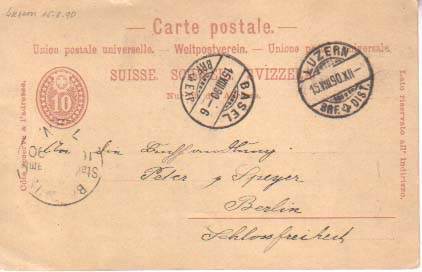 Luzern 15.8.90
Carte postale.
Union postale universelle. – Weltpostverein. – Unione postale universale.
SUISSE. SVIZZERA
10
Côté réservé à l'adresse.
Lato riservato all' indirizzo.
BASEL
BRF. EXP.
LUZERN
BRF. DIST.
An die Buchhandlung
Peter & Speyer
Berlin
Schlossfreiheit